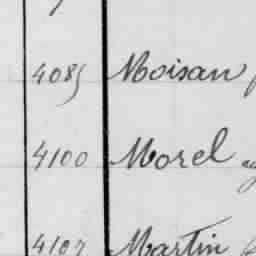 4085 Moisan
4100 Morel
4107 Martin